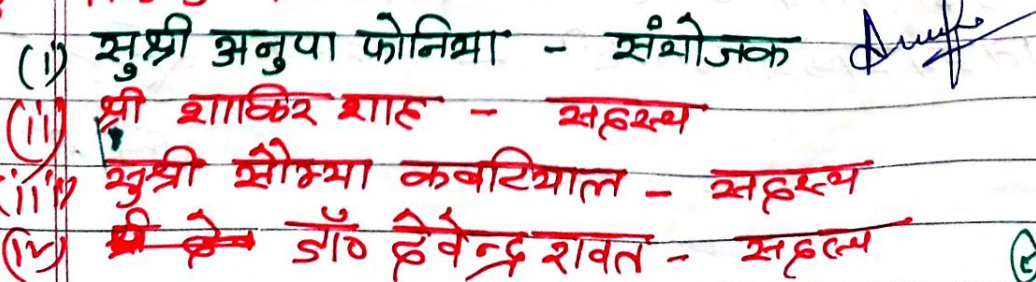 (i) सुश्री अनुपा फोनिया - संयोजक
(ii) श्री शाकिर शाह - सदस्य
(iii) सुश्री सौम्या कबटियाल - सदस्य
(iv) डॉ० देवेन्द्र रावत - सदस्य